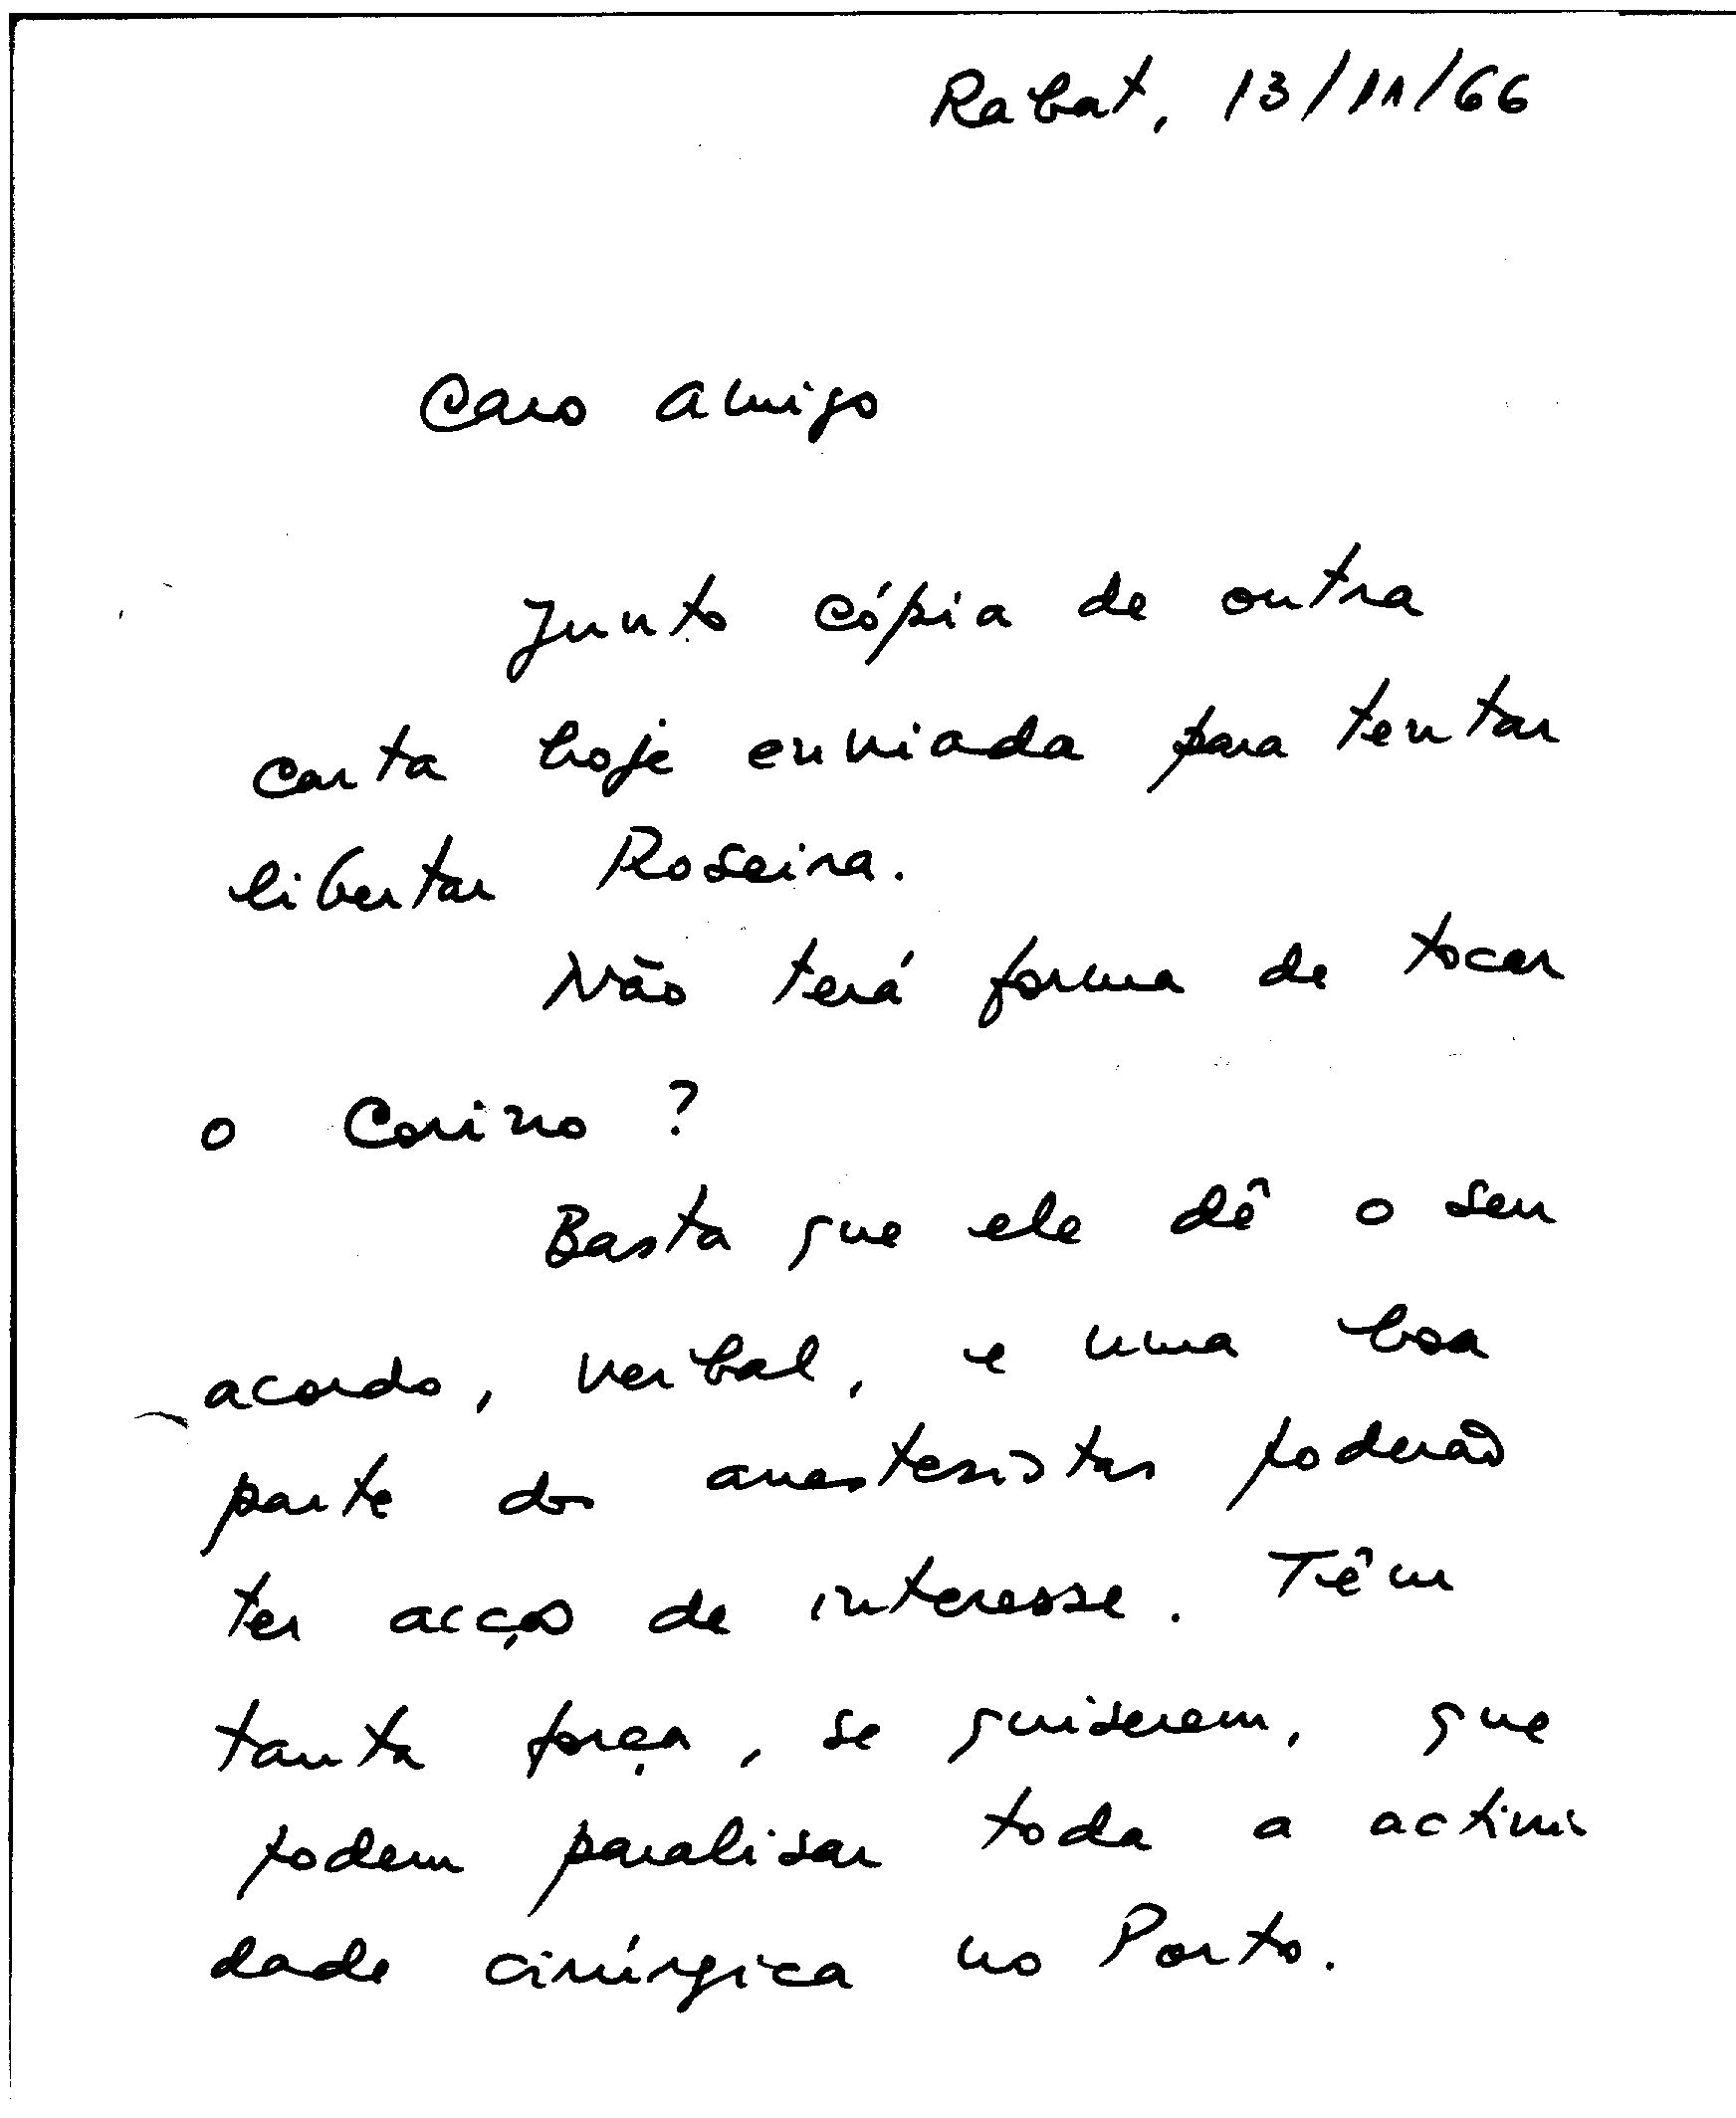 Rabat, 13/11/66
Caro amigo
Junto cópia de outra
carta hoje enviada para tentar
libertar Roseira.
Não terá forma de tocar
o Corino?
Basta que ele dê o seu
acordo, verbal, e uma boa
parte dos anestesistas poderão
ter acção de interesse. Têm
tanta força, se quiserem, que
podem paralisar toda a activi
dade cirúrgica no Porto.